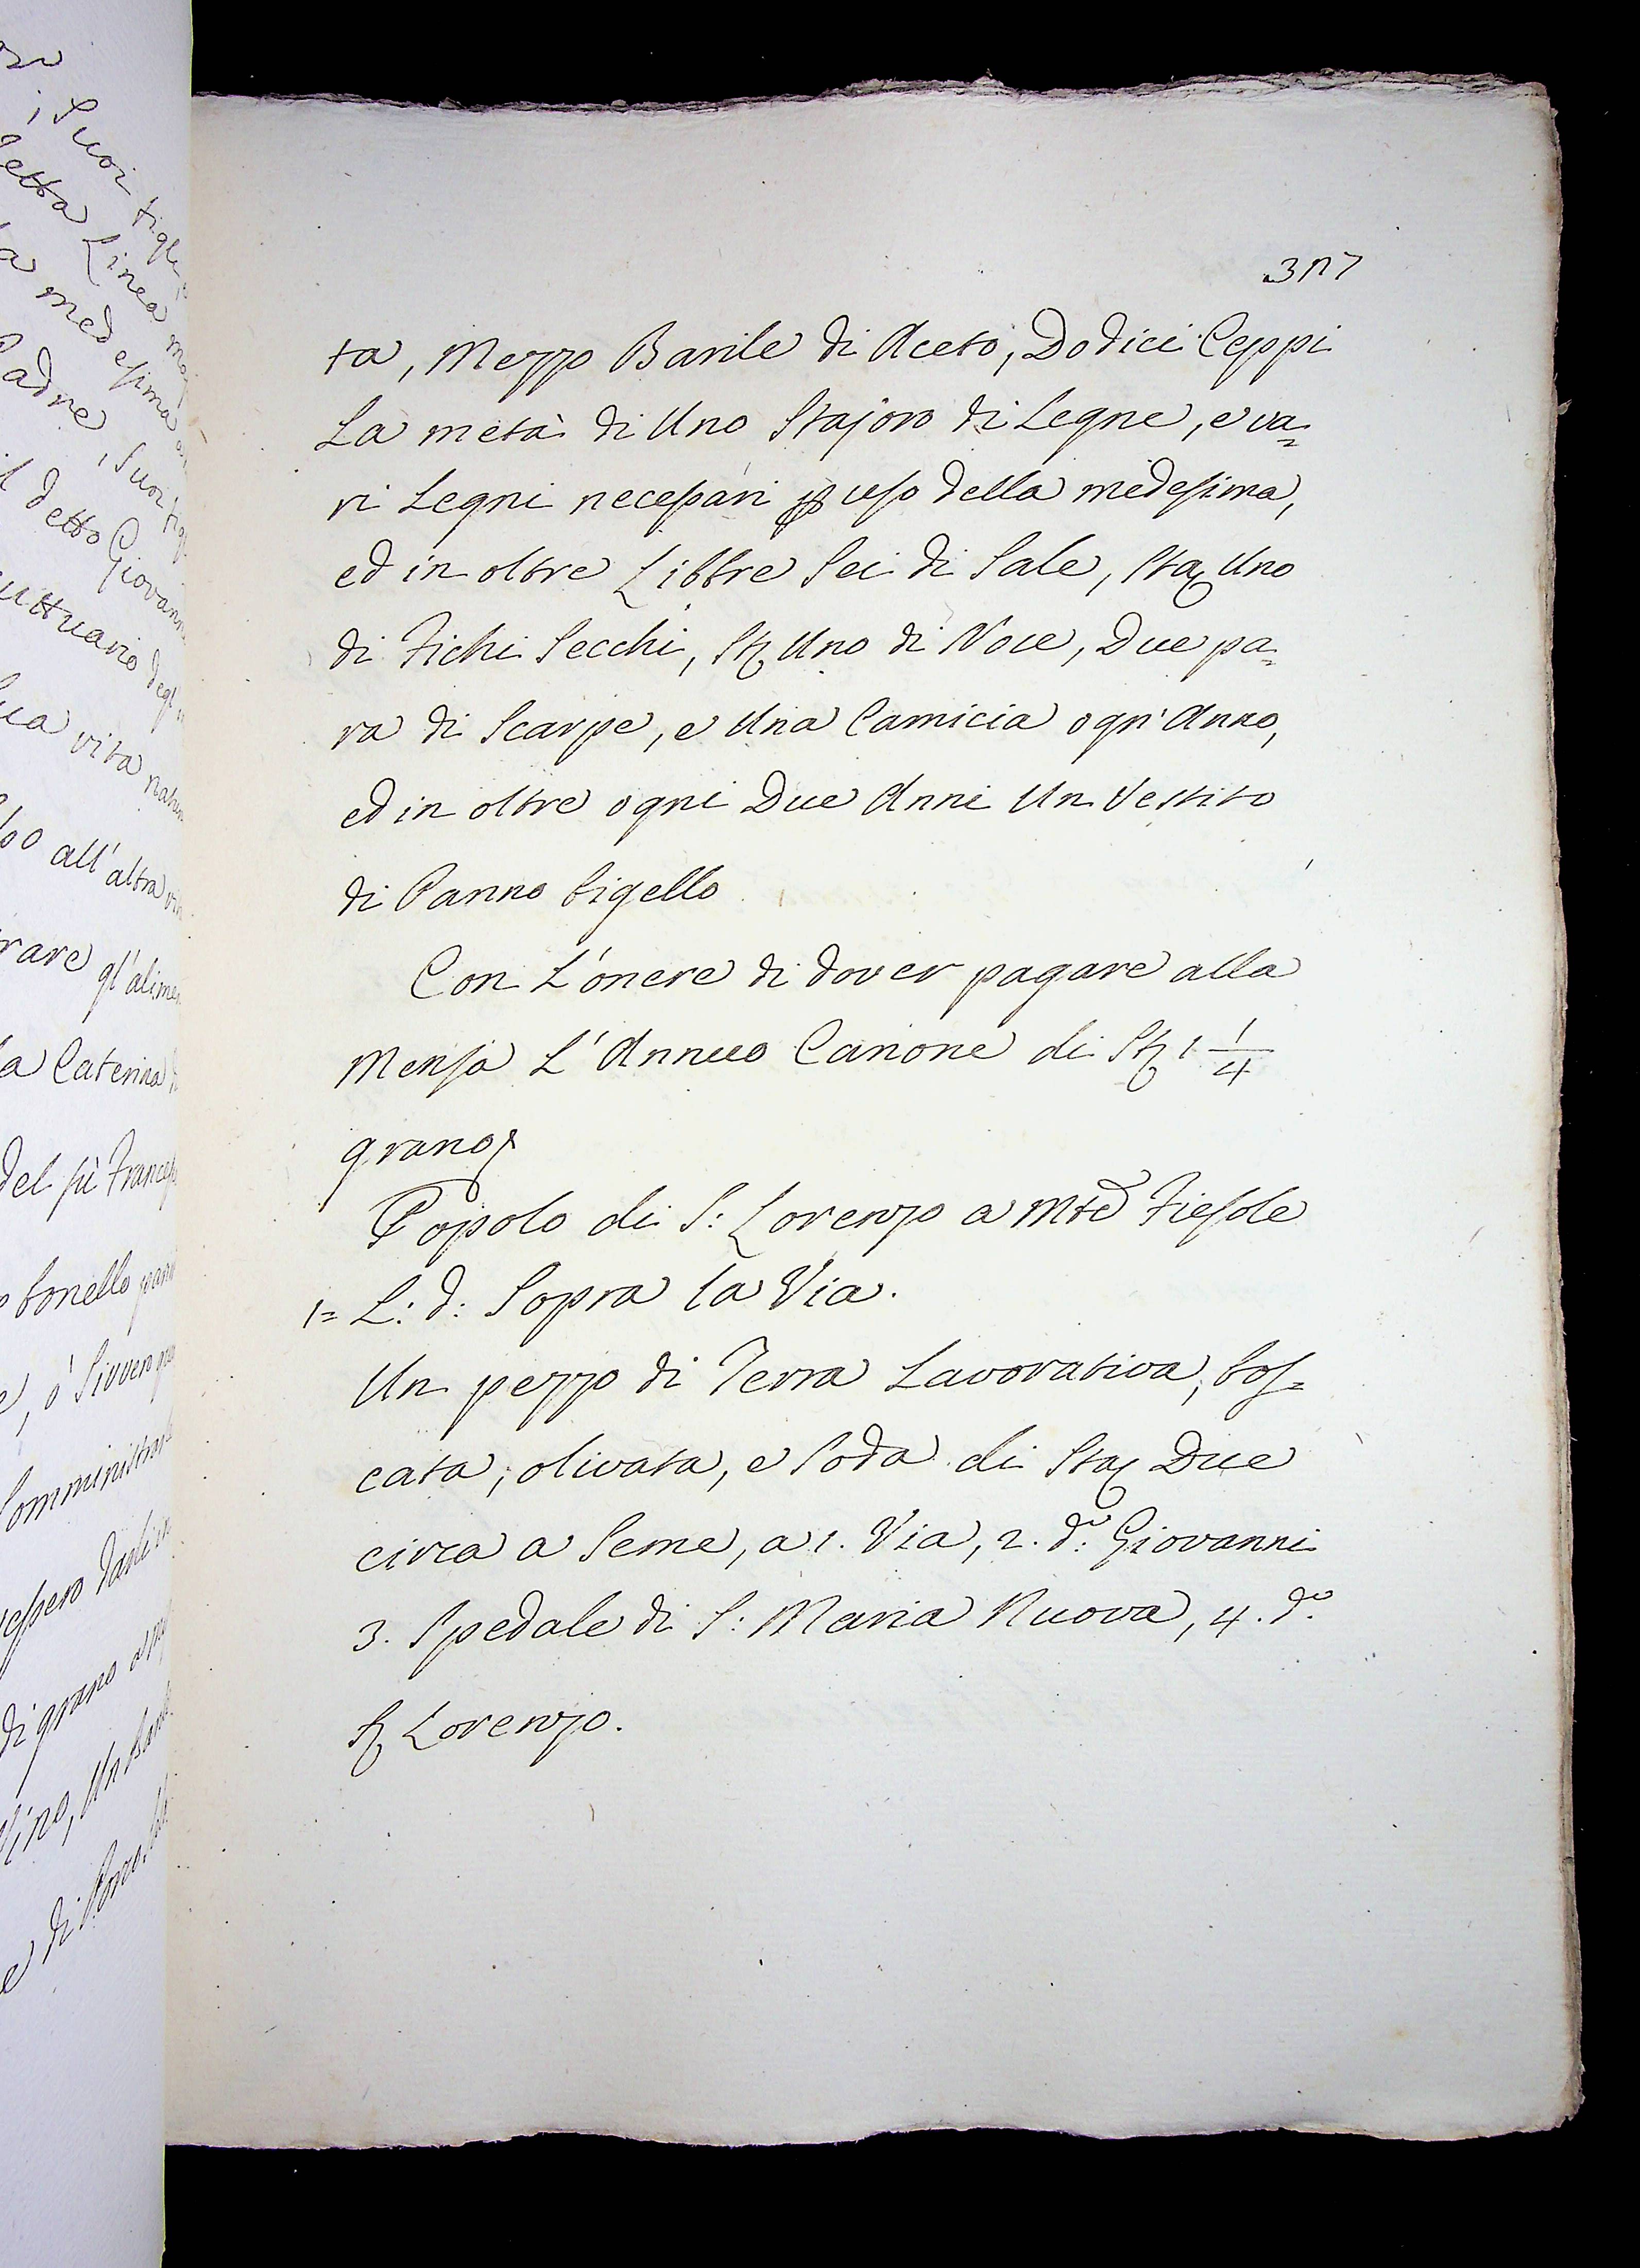 317
ta, Mezzo Barile di Aceto, Dodici Ceppi
La metà di Uno Stajoro di Legne, e va=
ri Legni necessari p uso della medesima,
ed in oltre Libbre Sei di Sale, Sta Uno
di Fichi Secchi, St Uno di Noce, Due pa=
ra di Scarpe, e Una Camicia ogn' Anno,
ed in oltre ogni Due Anni Un Vestito
di Panno bigello
Con L'onere di dover pagare alla
Mensa L'Annuo Canone di St 1 1/4
grano
Popolo di S: Lorenzo a Mte Fiesole
1= L: d: Sopra la Via.
Un pezzo di Terra Lavorativa, bos=
cata, olivata, e Soda di Sta Due
circa a Seme, a 1. Via, 2. do: Giovanni
3. Spedale di S: Maria Nuova, 4. do:
Lorenzo.
Suoi figli
detta Linea
a medesima
Padre, Suoi
il detto Giovanni
vita
all'altra
gl'alimen
la Caterina
del fù
bonello
ò Sivvero
di grano